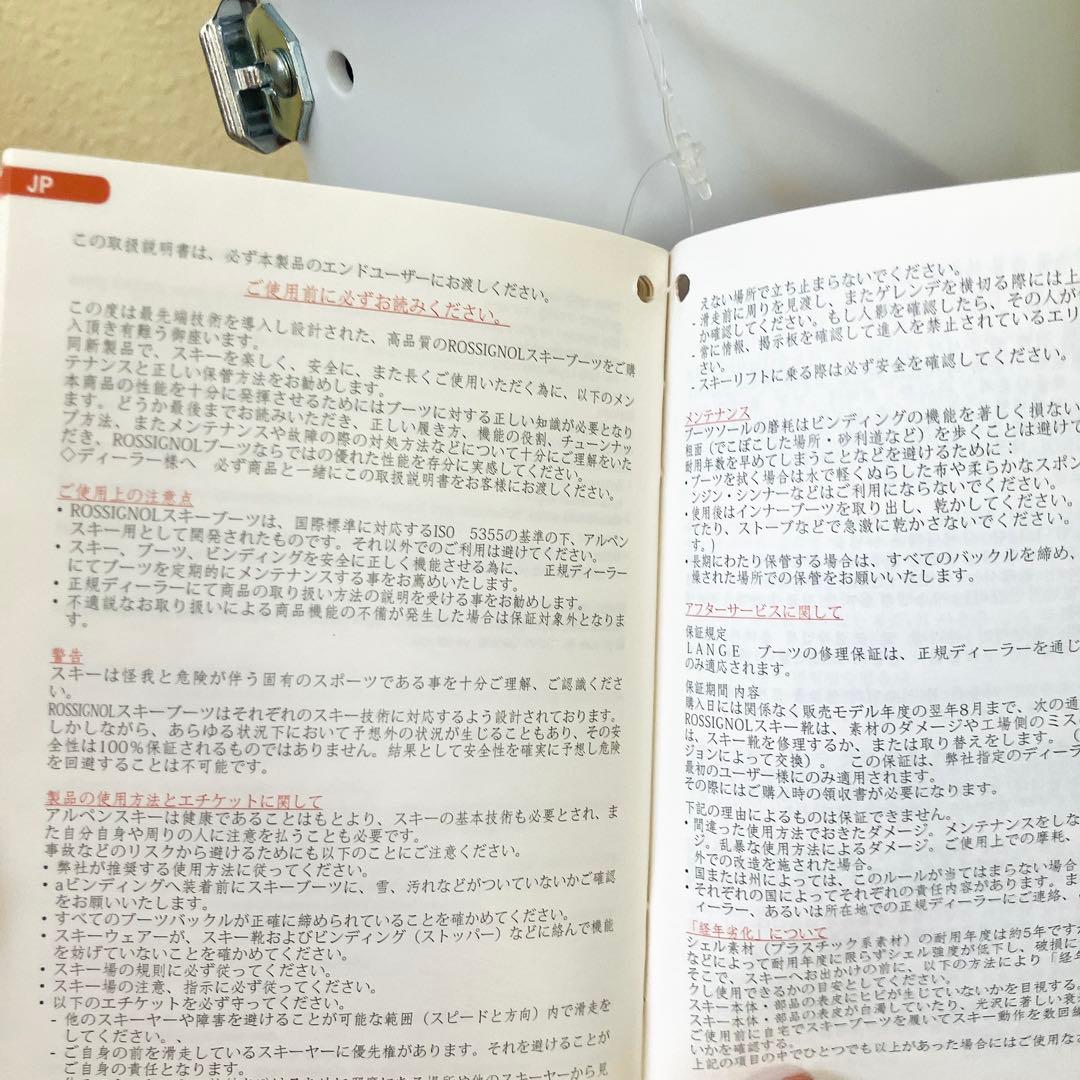 JP
この取扱説明書は、必ず本製品のエンドユーザーにお渡しください。
ご使用前に必ずお読みください。
この度は最先端技術を導入し設計された、高品質のROSSIGNOLスキーブーツをご購
入頂き有難う御座います。
同新製品で、スキーを楽しく、安全に、また長くご使用いただく為に、以下のメン
テナンスと正しい保管方法をお勧めします。
本商品の性能を十分に発揮させるためにはブーツに対する正しい知識が必要となり
ます。どうか最後までお読みいただき、正しい履き方、機能の役割、チューンナッ
プ方法、またメンテナンスや故障の際の対処方法などについて十分にご理解をいた
だき、ROSSIGNOLブーツならではの優れた性能を存分に実感してください。
◇ディーラー様へ　必ず商品と一緒にこの取扱説明書をお客様にお渡しください。
ご使用上の注意点
・ROSSIGNOLスキーブーツは、国際標準に対応するISO 5355の基準の下、アルペン
スキー用として開発されたものです。それ以外でのご利用は避けてください。
・スキー、ブーツ、ビンディングを安全に正しく機能させる為に、　正規ディーラー
にてブーツを定期的にメンテナンスする事をお薦めいたします。
・正規ディーラーにて商品の取り扱い方法の説明を受ける事をお勧めします。
・不適説なお取り扱いによる商品機能の不備が発生した場合は保証対象外となりま
す。
警告
スキーは怪我と危険が伴う固有のスポーツである事を十分ご理解、ご認識くださ
い。
ROSSIGNOLスキーブーツはそれぞれのスキー技術に対応するよう設計されております。
しかしながら、あらゆる状況下において予想外の状況が生じることもあり、その安
全性は100%保証されるものではありません。結果として安全性を確実に予想し危険
を回避することは不可能です。
製品の使用方法とエチケットに関して
アルペンスキーは健康であることはもとより、スキーの基本技術も必要とされ、ま
た自分自身や周りの人に注意を払うことも必要です。
事故などのリスクから避けるためにも以下のことにご注意ください。
・弊社が推奨する使用方法に従ってください。
・aビンディングへ装着前にスキーブーツに、雪、汚れなどがついていないかご確認
をお願いいたします。
・すべてのブーツバックルが正確に締められていることを確かめてください。
・スキーウェアーが、スキー靴およびビンディング（ストッパー）などに絡んで機能
を妨げていないことを確かめてください。
・スキー場の規則に必ず従ってください。
・スキー場の注意、指示に必ず従ってください。
・以下のエチケットを必ず守ってください。
- 他のスキーヤーや障害を避けることが可能な範囲（スピードと方向）内で滑走を
してください。、
- ご自身の前を滑走しているスキーヤーに優先権があります。それを避けることが
ご自身の責任となります。
えない場所で立ち止まらないでください。
- 滑走前に周りを見渡し、またゲレンデを横切る際には上
か確認してください。もし人影を確認したら、その人が
- 常に情報、掲示板を確認して進入を禁止されているエリ
さい。
- スキーリフトに乗る際は必ず安全を確認してください。
メンテナンス
ブーツソールの磨耗はビンディングの機能を著しく損ない
粗面（でこぼこした場所・砂利道など）を歩くことは避けて
耐用年数を早めてしまうことなどを避けるために：
・ブーツを拭く場合は水で軽くぬらした布や柔らかなスポン
ンジン・シンナーなどはご利用にならないでください。
・使用後はインナーブーツを取り出し、乾かしてください。
てたり、ストーブなどで急激に乾かさないでください。
す。）
・長期にわたり保管する場合は、すべてのバックルを締め、
燥された場所での保管をお願いいたします。
アフターサービスに関して
保証規定
LANGE　ブーツの修理保証は、正規ディーラーを通じ
のみ適応されます。
保証期間 内容
購入日には関係なく販売モデル年度の翌年8月まで、次の通
ROSSIGNOLスキー靴は、素材のダメージや工場側のミス
は、スキー靴を修理するか、または取り替えをします。（
ジョンによって交換）。　この保証は、弊社指定のディーラ
最初のユーザー様にのみ適用されます。
その際にはご購入時の領収書が必要になります。
下記の理由によるものは保証できません。
・間違った使用方法でおきたダメージ。メンテナンスをしな
ジ。乱暴な使用方法によるダメージ。ご使用上での摩耗、
外での改造を施された場合。
・国または州によっては、このルールが当てはまらない場合
・それぞれの国によってそれぞれの責任内容があります。ま
ィーラー、あるいは所在地での正規ディーラーにご連絡、
「経年劣化」について
シェル素材（プラスチック系素材）の耐用年度は約5年ですが
などによって耐用年度に限らずシェル強度が低下し、破損に
そこで、スキーへお出かけの前に、以下の方法により「経年
クし使用できるかの目安としてください。
スキー本体・部品の表皮にヒビが生じていないかを目視する。
スキー本体・部品の表皮が白濁していたり、光沢に著しい衰
ご使用前に自宅でスキーブーツを履いてスキー動作を数回
いかを確認する。
上記の項目の中でひとつでも以上があった場合にはご使用な